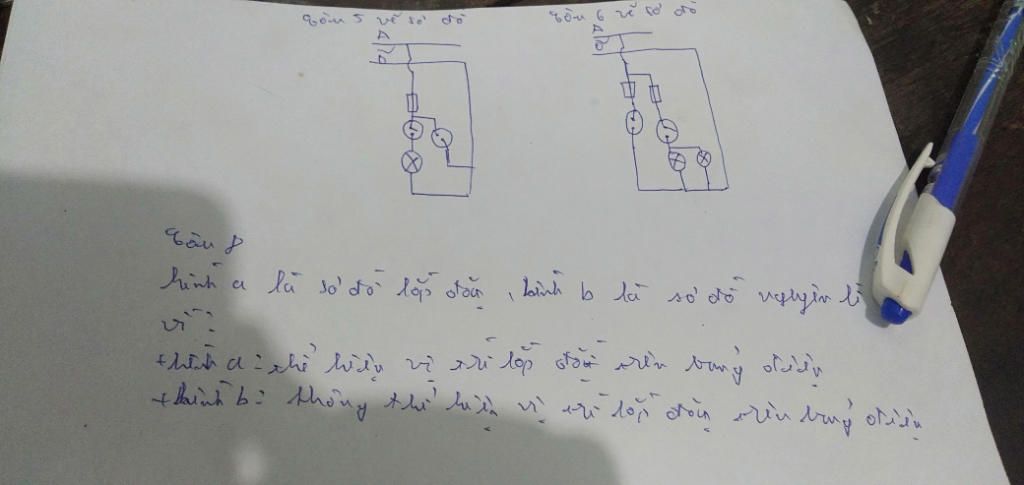 Câu 5 vẽ sơ đồ
A
O
Câu 6 vẽ sơ đồ
A
O
Câu 8
hình a là sơ đồ lắp đặt, hình b là sơ đồ nguyên lí
vì:
+ hình a: thể hiện vị trí lắp đặt trên bảng điện
+ hình b: không thể hiện vị trí lắp đặt trên bảng điện